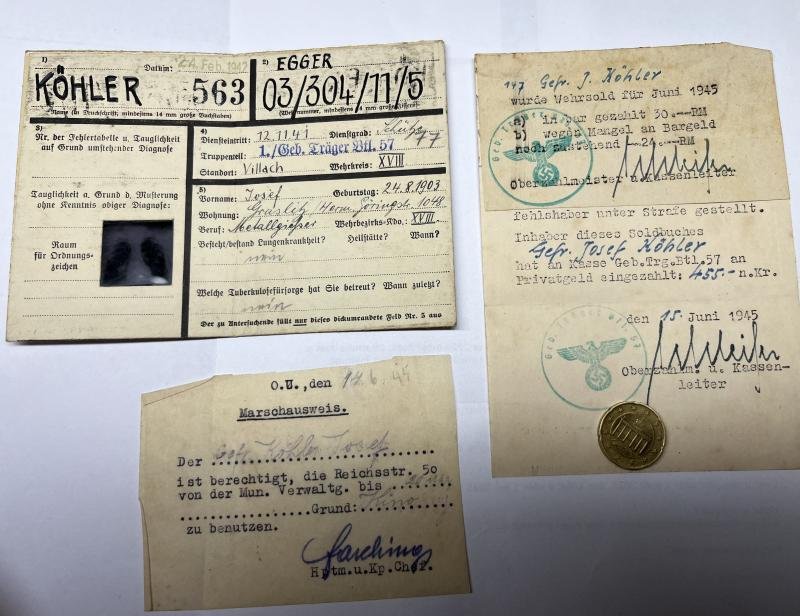 1)
Datum: 24. Feb. 1942
KÖHLER 563
Name (in Druckschrift, mindestens 14 mm große Buchstaben)
2) EGGER
03/304/11/5
3)
Nr. der Fehlertabelle u. Tauglichkeit
auf Grund umstehender Diagnose
Tauglichkeit a. Grund d. Musterung
ohne Kenntnis obiger Diagnose:
Raum
für Ordnungs-
zeichen
4)
Diensteintritt: 12.11.41 Dienstgrad: Schütze
Truppenteil: 1./Geb. Träger Btl. 57
Standort: Villach Wehrkreis: XVIII
5)
Vorname: Josef Geburtstag: 24.8.1903
Wohnung: Graslitz Herm. Göringstr. 1048
Beruf: Metallgießer Wehrbezirks-Kdo.: XVIII.
Besteht/bestand Lungenkrankheit? Heilstätte? Wann?
nein
Welche Tuberkulosefürsorge hat Sie betreut? Wann zuletzt?
nein
Der zu Untersuchende füllt nur dieses dickumrandete Feld Nr. 5 aus
147 Gefr. J. Köhler
wurde Wehrsold für Juni 1945
a) in bar gezahlt 30.--RM
b) wegen Mangel an Bargeld
noch zustehend 24.--RM
Oberzahlmeister u. Kassenleiter
fehlshaber unter Strafe gestellt.
Inhaber dieses Soldbuches
Gefr. Josef Köhler
hat an Kasse Geb.Trg.Btl.57 an
Privatgeld eingezahlt: 455.- n.Kr.
den 15. Juni 1945
Oberzahlm. u. Kassen-
leiter
O.U., den 14.6.45
Marschausweis.
Der Gefr. Köhler Josef
ist berechtigt, die Reichsstr. 50
von der Mun. Verwaltg. bis
Grund: Kino
zu benutzen.
Hptm.u.Kp.Chef.